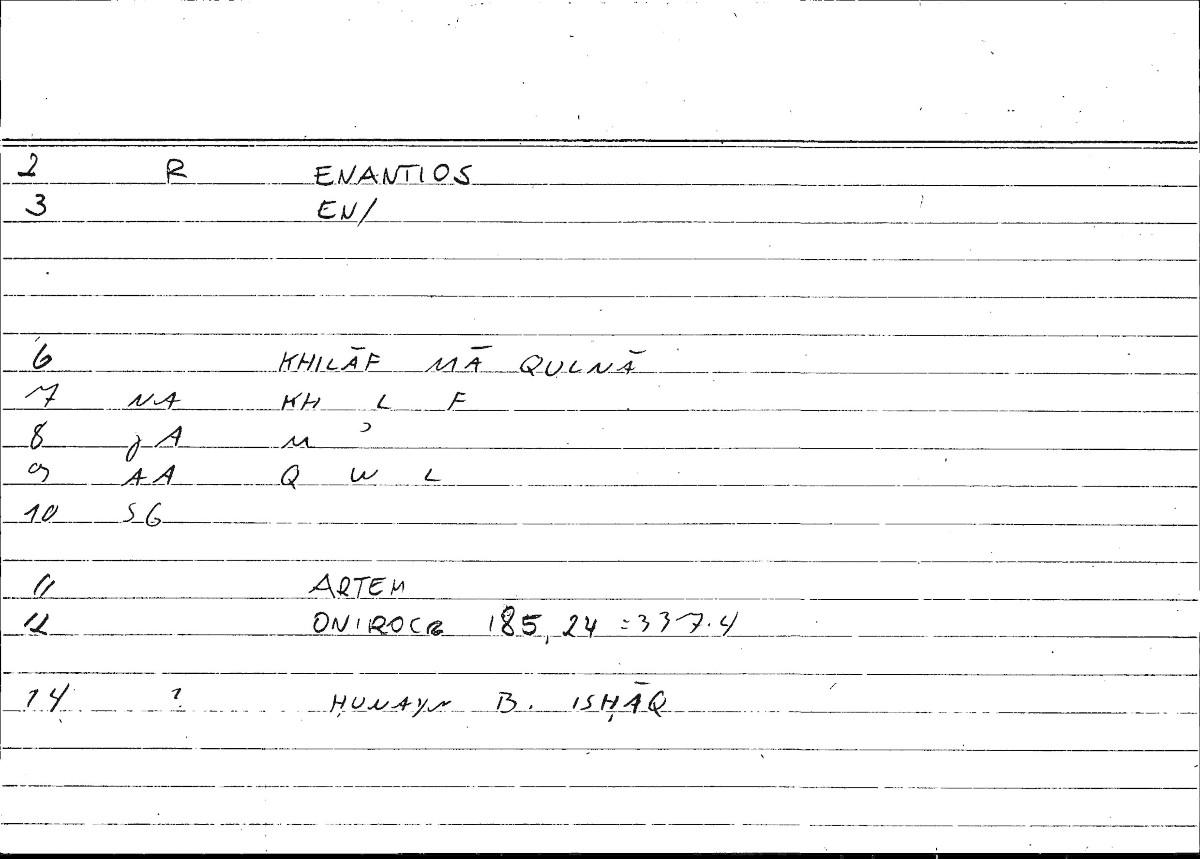 2 R ENANTIOS
3 EN/
6 KHILĀF MĀ QULNĀ
7 NA KH L F
8 JA M ʾ
9 AA Q W L
10 SG
11 ARTEM
12 ONIROCR 185,24 = 337.4
14 ? ḤUNAYN B. ISḤĀQ